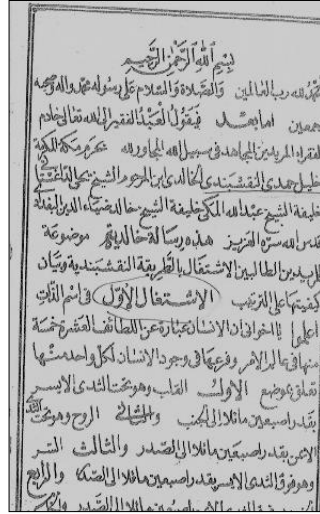 بسم الله الرحمن الرحيم
الحمد لله رب العالمين والصلاة والسلام على رسوله محمد واله وصحبه
اجمعين اما بعد فيقول العبد الفقير الى الله تعالى خادم
الفقراء المريدين المجاهد في سبيل الله المجاور لله بحرم مكة
خليل حمدى النقشبندى الخالدى ابن المرحوم الشيخ يحيى الداغستانى
خليفة الشيخ عبد الله المكى خليفة الشيخ خالد ضياء الدين
قدس الله سره العزيز هذه رسالة خالدية موضوعة
للمريدين الطالبين الاشتغال بالطريقة النقشبندية وبيان
كيفيتها على الترتيب الاشتغال الاول في اسم الذات
اعلموا يا اخوانى ان الانسان عبارة عن اللطائف العشرة خمسة
منها في عالم الامر وفرعها في وجود الانسان لكل واحد منها
تعلق بموضع الاول القلب وهو تحت الثدى الايسر
بقدر اصبعين مائلا الى الجنب والثانى الروح وهو تحت
الايمن بقدر اصبعين مائلا الى الصدر والثالث السر
وهو فوق الثدى الايسر بقدر اصبعين مائلا الى الصدر والرابع